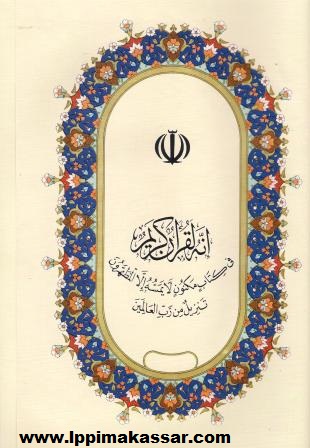 إنه لقرآن كريم
في كتاب مكنون لا يمسه إلا المطهرون
تنزيل من رب العالمين
www.lppimakassar.com